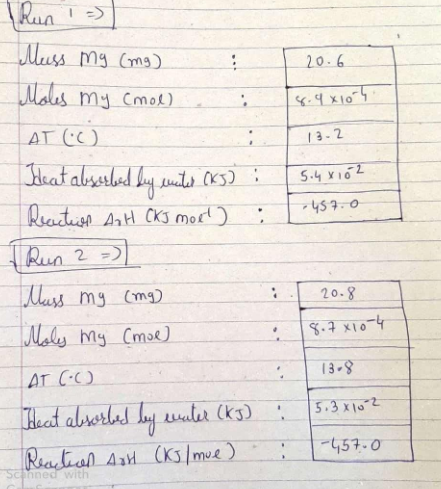 Run 1 =>
Mass Mg (mg) : 20.6
Moles Mg (mol) : 8.4 x10-4
ΔT (°C) : 13.2
Heat absorbed by water (KJ) : 5.4 x10-2
Reaction ΔrH (KJ mol-1) : -457.0
Run 2 =>
Mass Mg (mg) : 20.8
Moles Mg (mol) : 8.7 x10-4
ΔT (°C) : 13.8
Heat absorbed by water (KJ) : 5.3 x10-2
Reaction ΔrH (KJ/mol) : -457.0
Scanned with